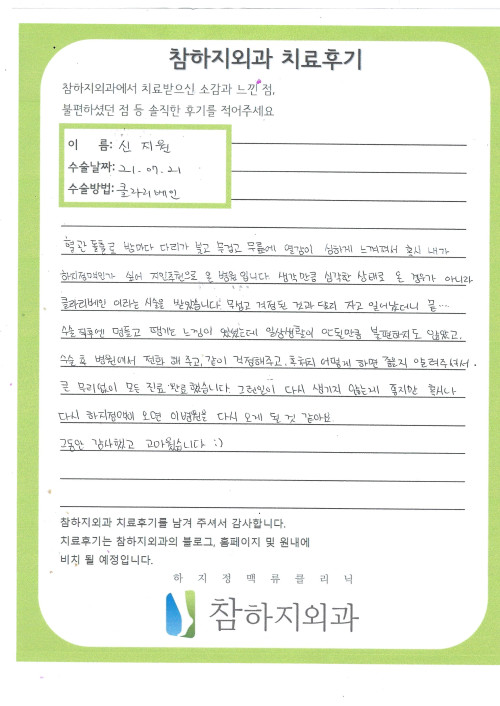 참하지외과 치료후기
참하지외과에서 치료받으신 소감과 느낀 점,
불편하셨던 점 등 솔직한 후기를 적어주세요
이 름: 신 지원
수술날짜: 21. 07. 21
수술방법: 클라리베인
혈관 돌출로 밤마다 다리가 붓고 무겁고 무릎에 열감이 심하게 느껴져서 혹시 내가
하지정맥인가 싶어 지인추천으로 온 병원입니다. 생각만큼 심각한 상태로 온 경우가 아니라
클라리베인 이라는 시술을 받았습니다. 무섭고 걱정된 것과 달리 자고 일어났더니 끝…
수술직후엔 멍들고 땡기는 느낌이 있었는데 일상생활이 안될만큼 불편하지도 않았고.
수술 후 병원에서 전화 해 주고, 같이 걱정해주고. 후처티 어떻게 하면 좋을지 알려주셔서.
큰 무리없이 모든 진료 완료했습니다. 그런일이 다시 생기지 않는게 좋지만 혹시나
다시 하지정맥이 오면 이병원을 다시 오게 될 것 같아요
그동안 감사했고 고마웠습니다 :)
참하지외과 치료후기를 남겨 주셔서 감사합니다.
치료후기는 참하지외과의 블로그, 홈페이지 및 원내에
비치 될 예정입니다.
하지정맥류클리닉
참하지외과